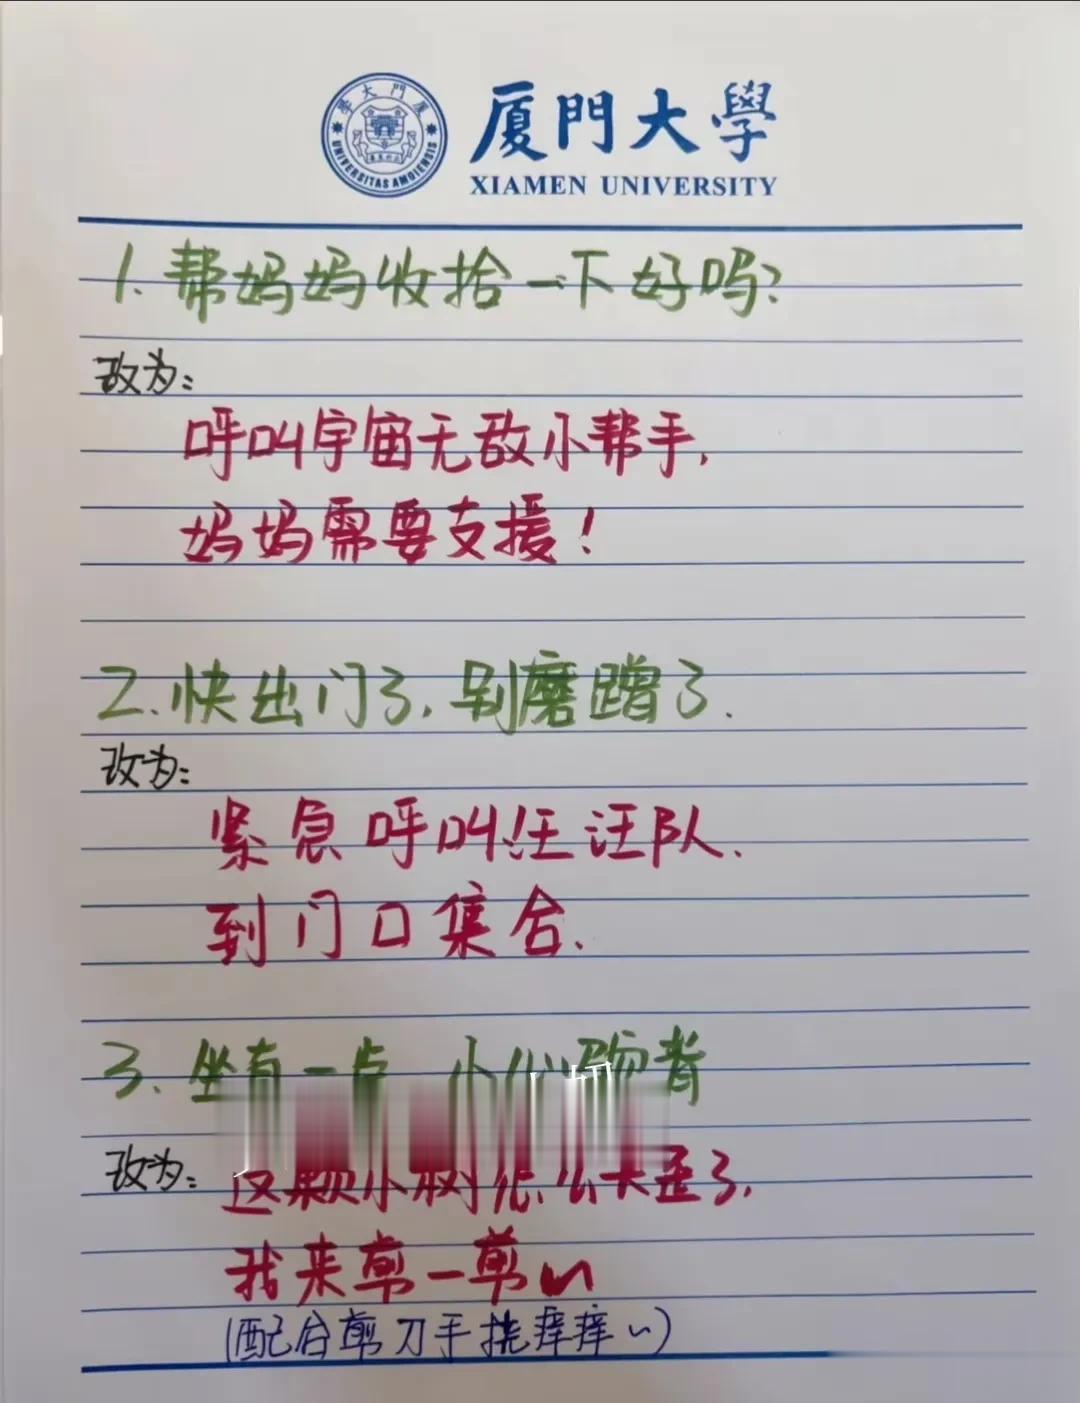 厦門大學
XIAMEN UNIVERSITY
廈門大學
UNIVERSITAS AMOIENSIS
1. 帮妈妈收拾一下好吗?
改为:
呼叫宇宙无敌小帮手,
妈妈需要支援!
2. 快出门了,别磨蹭了.
改为:
紧急呼叫!汪汪队.
到门口集合.
3. 坐直一点 小心驼背
改为: 这颗小树怎么长歪了,
我来剪一剪~
(配合剪刀手挠痒痒~)